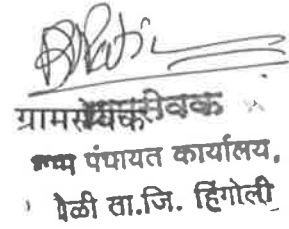 ग्रामसेवक
ग्राम पंचायत कार्यालय,
पेळी ता.जि. हिंगोली